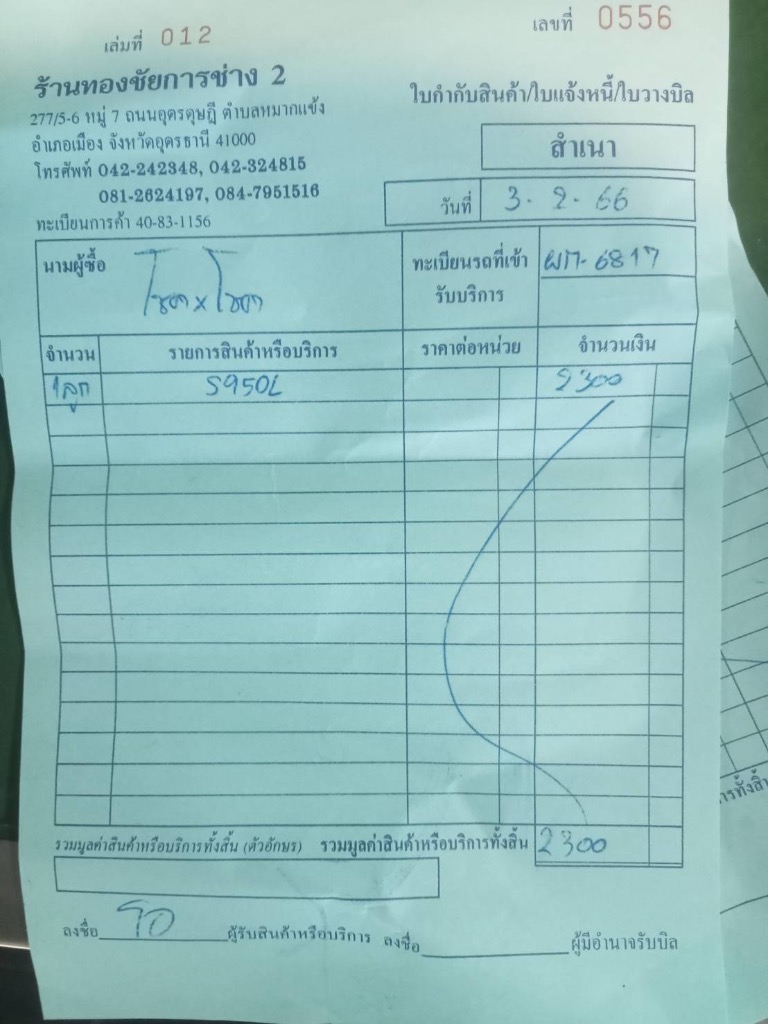 เล่มที่ 012
เลขที่ 0556
ร้านทองชัยการช่าง 2
277/5-6 หมู่ 7 ถนนอุดรดุษฎี ตำบลหมากแข้ง
อำเภอเมือง จังหวัดอุดรธานี 41000
โทรศัพท์ 042-242348, 042-324815
081-2624197, 084-7951516
ทะเบียนการค้า 40-83-1156
ใบกำกับสินค้า/ใบแจ้งหนี้/ใบวางบิล
สำเนา
วันที่ 3-2-66
นามผู้ซื้อ โชค x โชค
ทะเบียนรถที่เข้า ผก-6817
รับบริการ
จำนวน รายการสินค้าหรือบริการ ราคาต่อหน่วย จำนวนเงิน
1ลูก S950L 2300
รวมมูลค่าสินค้าหรือบริการทั้งสิ้น (ตัวอักษร) รวมมูลค่าสินค้าหรือบริการทั้งสิ้น 2300
ลงชื่อ ผู้รับสินค้าหรือบริการ ลงชื่อ ผู้มีอำนาจรับบิล